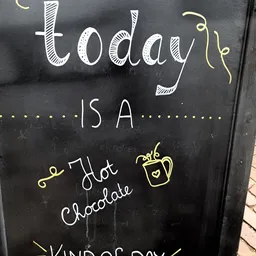 today
IS A
Hot
Chocolate
KIND OF DAY